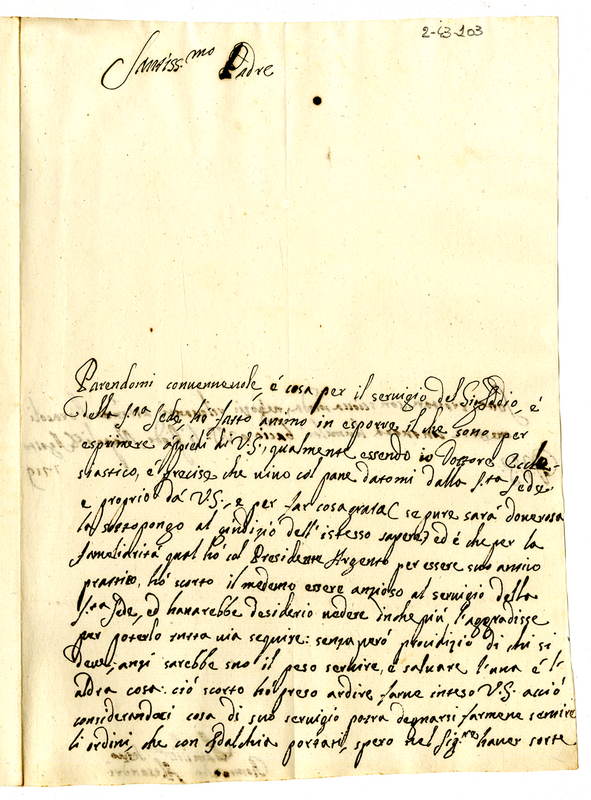 2-63-103
Santiss.mo Padre
Parendomi convennevole, é cosa per il servigio del é
della S.ta Sede, hó fatto animo in esporre il che sono per
esprimere appiedi di V.S., qualmente essendo io Dottore Eccle-
siastico, e precise che vivo col pane datomi dalla S.ta Sede
e proprio da V.S., e per far cosa grata (se pure sará doverosa
lo sottopongo al giudizio dell'istesso sapere) ed é che per la
fameliaritá qual hó col Presidente Argento per essere suo antico
prattico, hó scorto il medemo essere anzioso al servigio della
S.ta Sede, ed havarebbe desiderio vedere in che piú l'aggradisse
per poterlo tutta via sequire: senza peró providizio di chi si
deve, anzi sarebbe suo il peso servire, é salvare l'una é l'
altra cosa. ció scorto hó preso ardire farne inteso V.S. acció
considerandoci cosa di suo servigio potrá degnarsi farmene servire
li ordini, che con portarí, spero nel Sig.re haver sorte